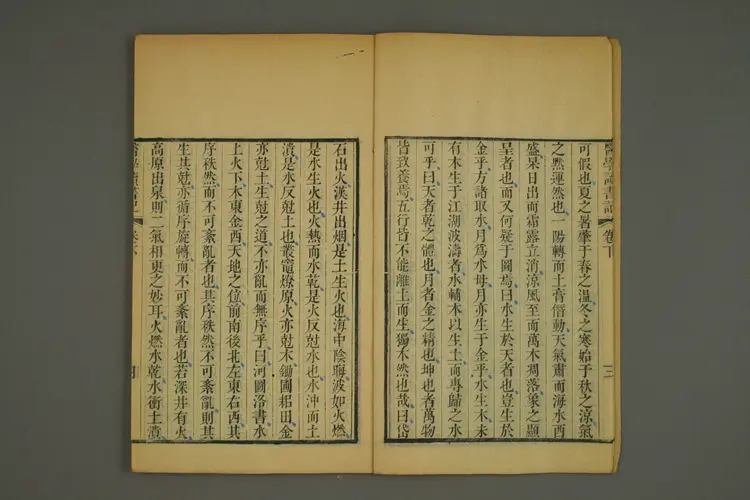 醫學讀書記 卷下 三
可假也夏之暑肇于春之溫冬之寒始于秋之涼氣
之默運然也一陽轉而土膏僭動天氣肅而海水西
盛杲日出而霜露立消涼風至而萬木凋落象之顯
呈者也而又何疑于圖焉曰水生於天者也豈生於
金乎方諸取水月為水母月亦生于金乎水生木未
有木生于江湖波濤者水輔木以生土而專歸之水
可乎曰天者乾之體也月者金之精也坤也者萬物
皆致養焉五行皆不能離土而生獨木然也哉曰岱
石出火漢井出烟是土生火也海中陰晦波如火燃
是水生火也火熱而水乾是火反尅水也水沖而土
潰是水反尅土也叢竈燎原火亦尅木鋤圃耜田金
亦尅土生尅之道不亦亂而無序乎曰河圖洛書水
上火下木東金西天地之位前南後北左東右西其
序秩然而不可紊亂者也其序秩然不可紊亂則其
生其尅亦循序旋轉而不可紊亂者也若深井有火
高原出泉則二氣相更之妙耳火燃水乾水衝土潰
醫學讀書記 卷下